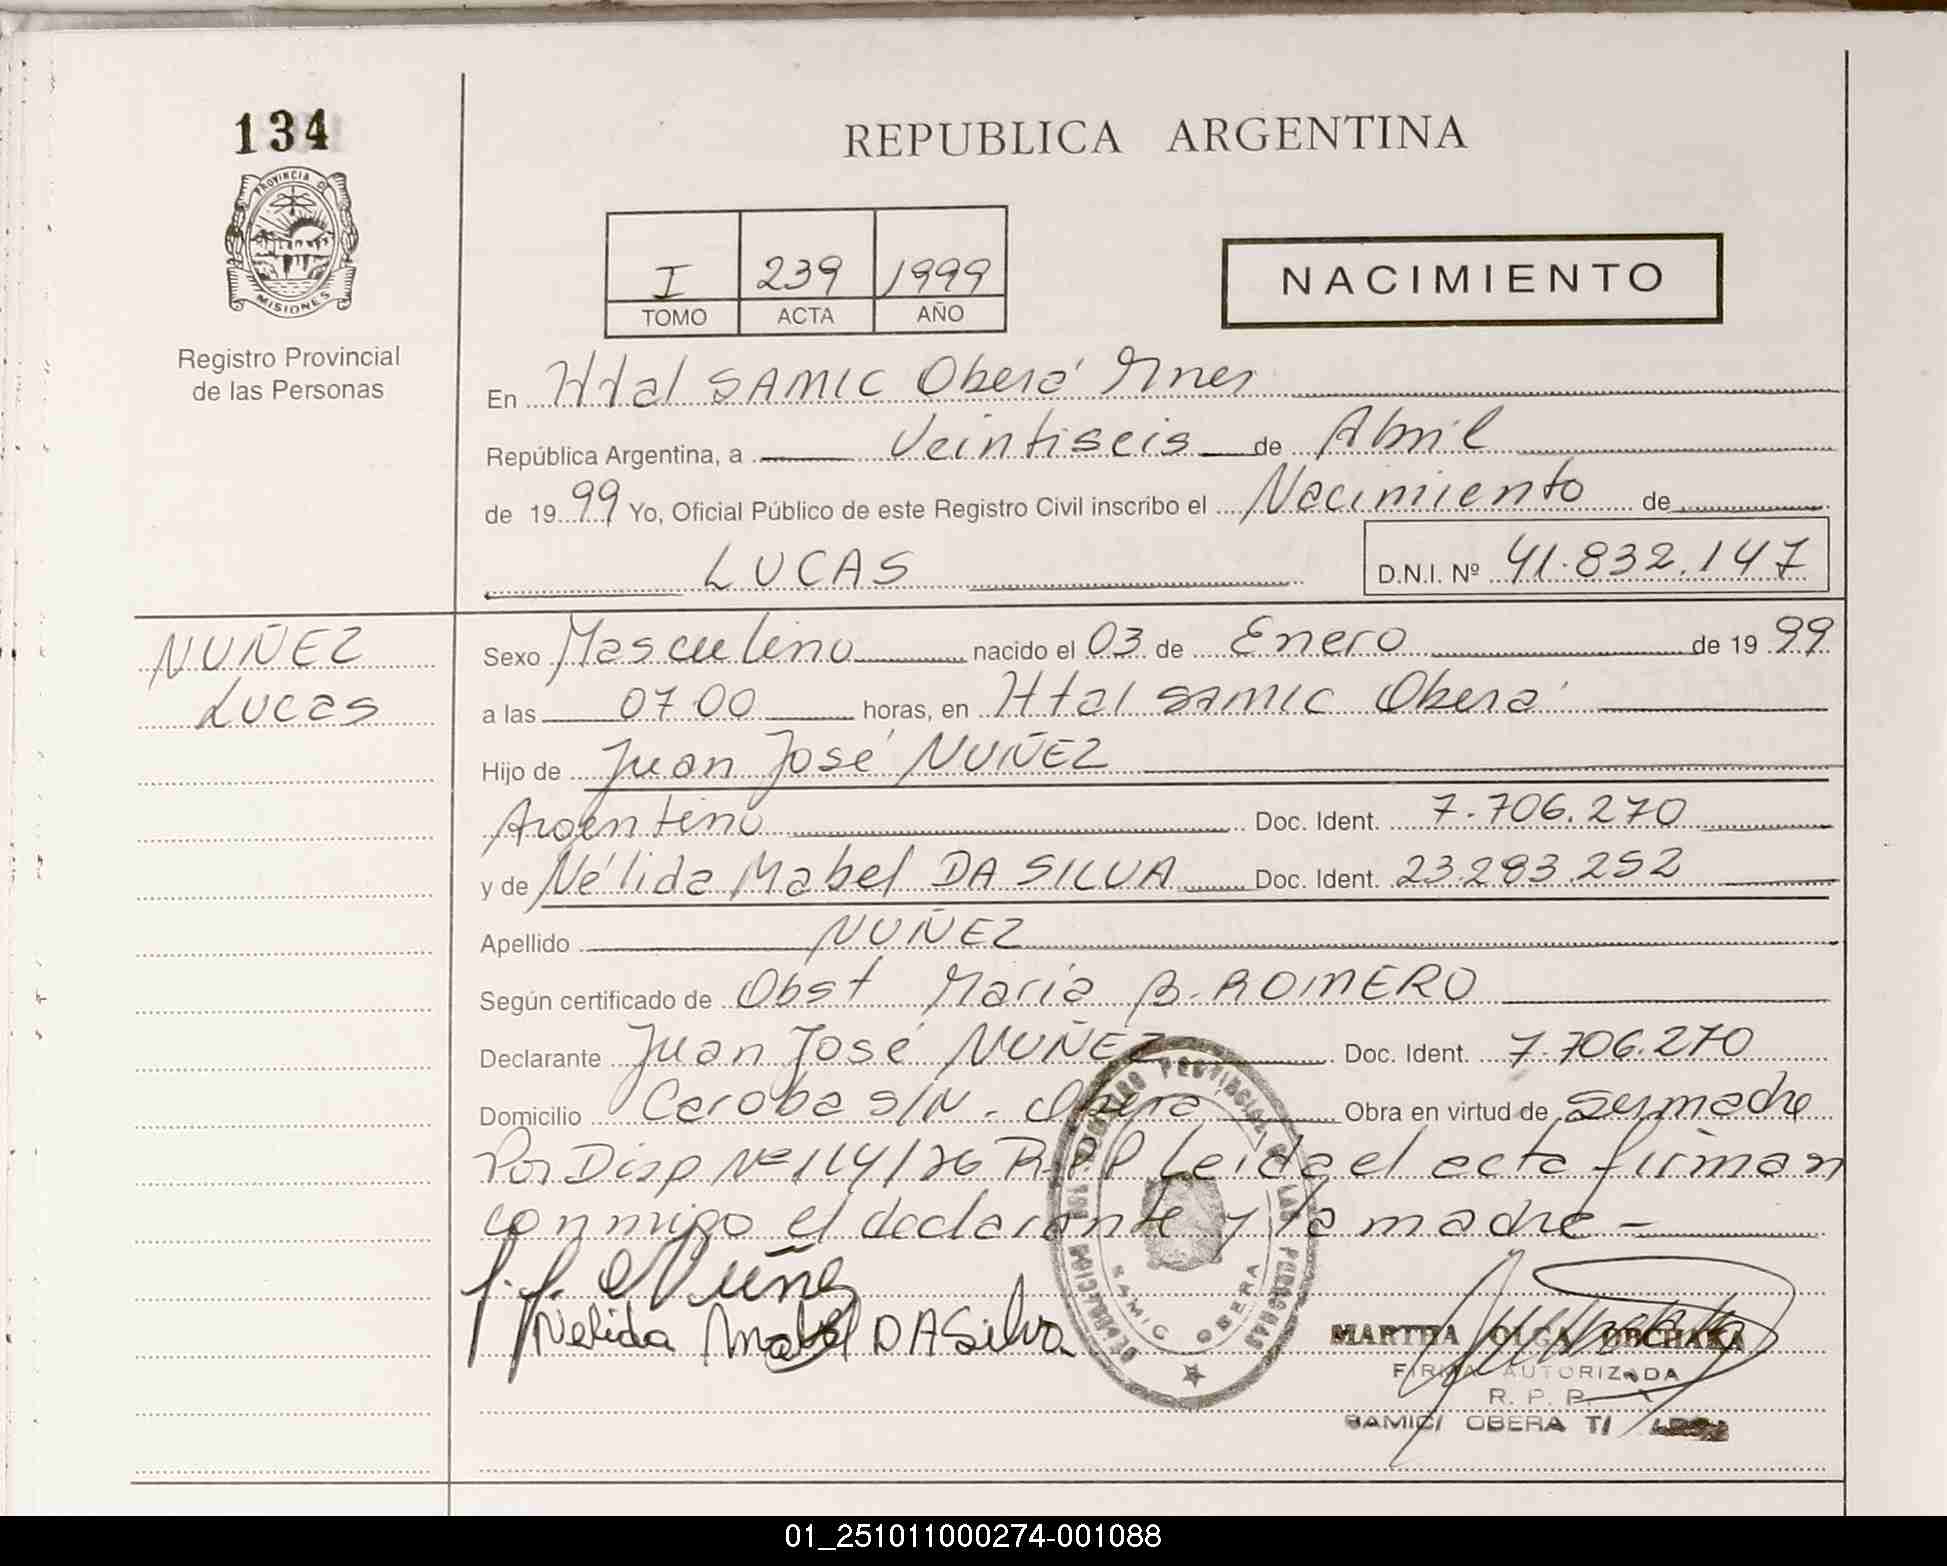 134
PROVINCIA DE
MISIONES
Registro Provincial
de las Personas
REPUBLICA ARGENTINA
I 239 1999
TOMO ACTA AÑO
NACIMIENTO
En Htal SAMIC Oberá Mnes
República Argentina, a Veintiseis de Abril
de 19 99 Yo, Oficial Público de este Registro Civil inscribo el Nacimiento de
LUCAS D.N.I. Nº 41.832.147
NUÑEZ
Lucas
Sexo Masculino nacido el 03 de Enero de 19 99
a las 07 00 horas, en Htal SAMIC Oberá
Hijo de Juan José NUÑEZ
Argentino Doc. Ident. 7.706.270
y de Nélida Mabel DA SILVA Doc. Ident. 23.283.252
Apellido NUÑEZ
Según certificado de Obst María B. ROMERO
Declarante Juan José NUÑEZ Doc. Ident. 7.706.270
Domicilio Caroba S/N. Oberá Obra en virtud de ser madre
Por Disp Nº 114/76 R.P.P Leida el acta firman
conmigo el declarante y la madre -
J. J. Nuñez
Nelida Mabel DA Silva
SAMIC OBERA
MARTHA OLGA
FIRMA AUTORIZADA
R. P. P.
SAMIC/ OBERA
01_251011000274-001088